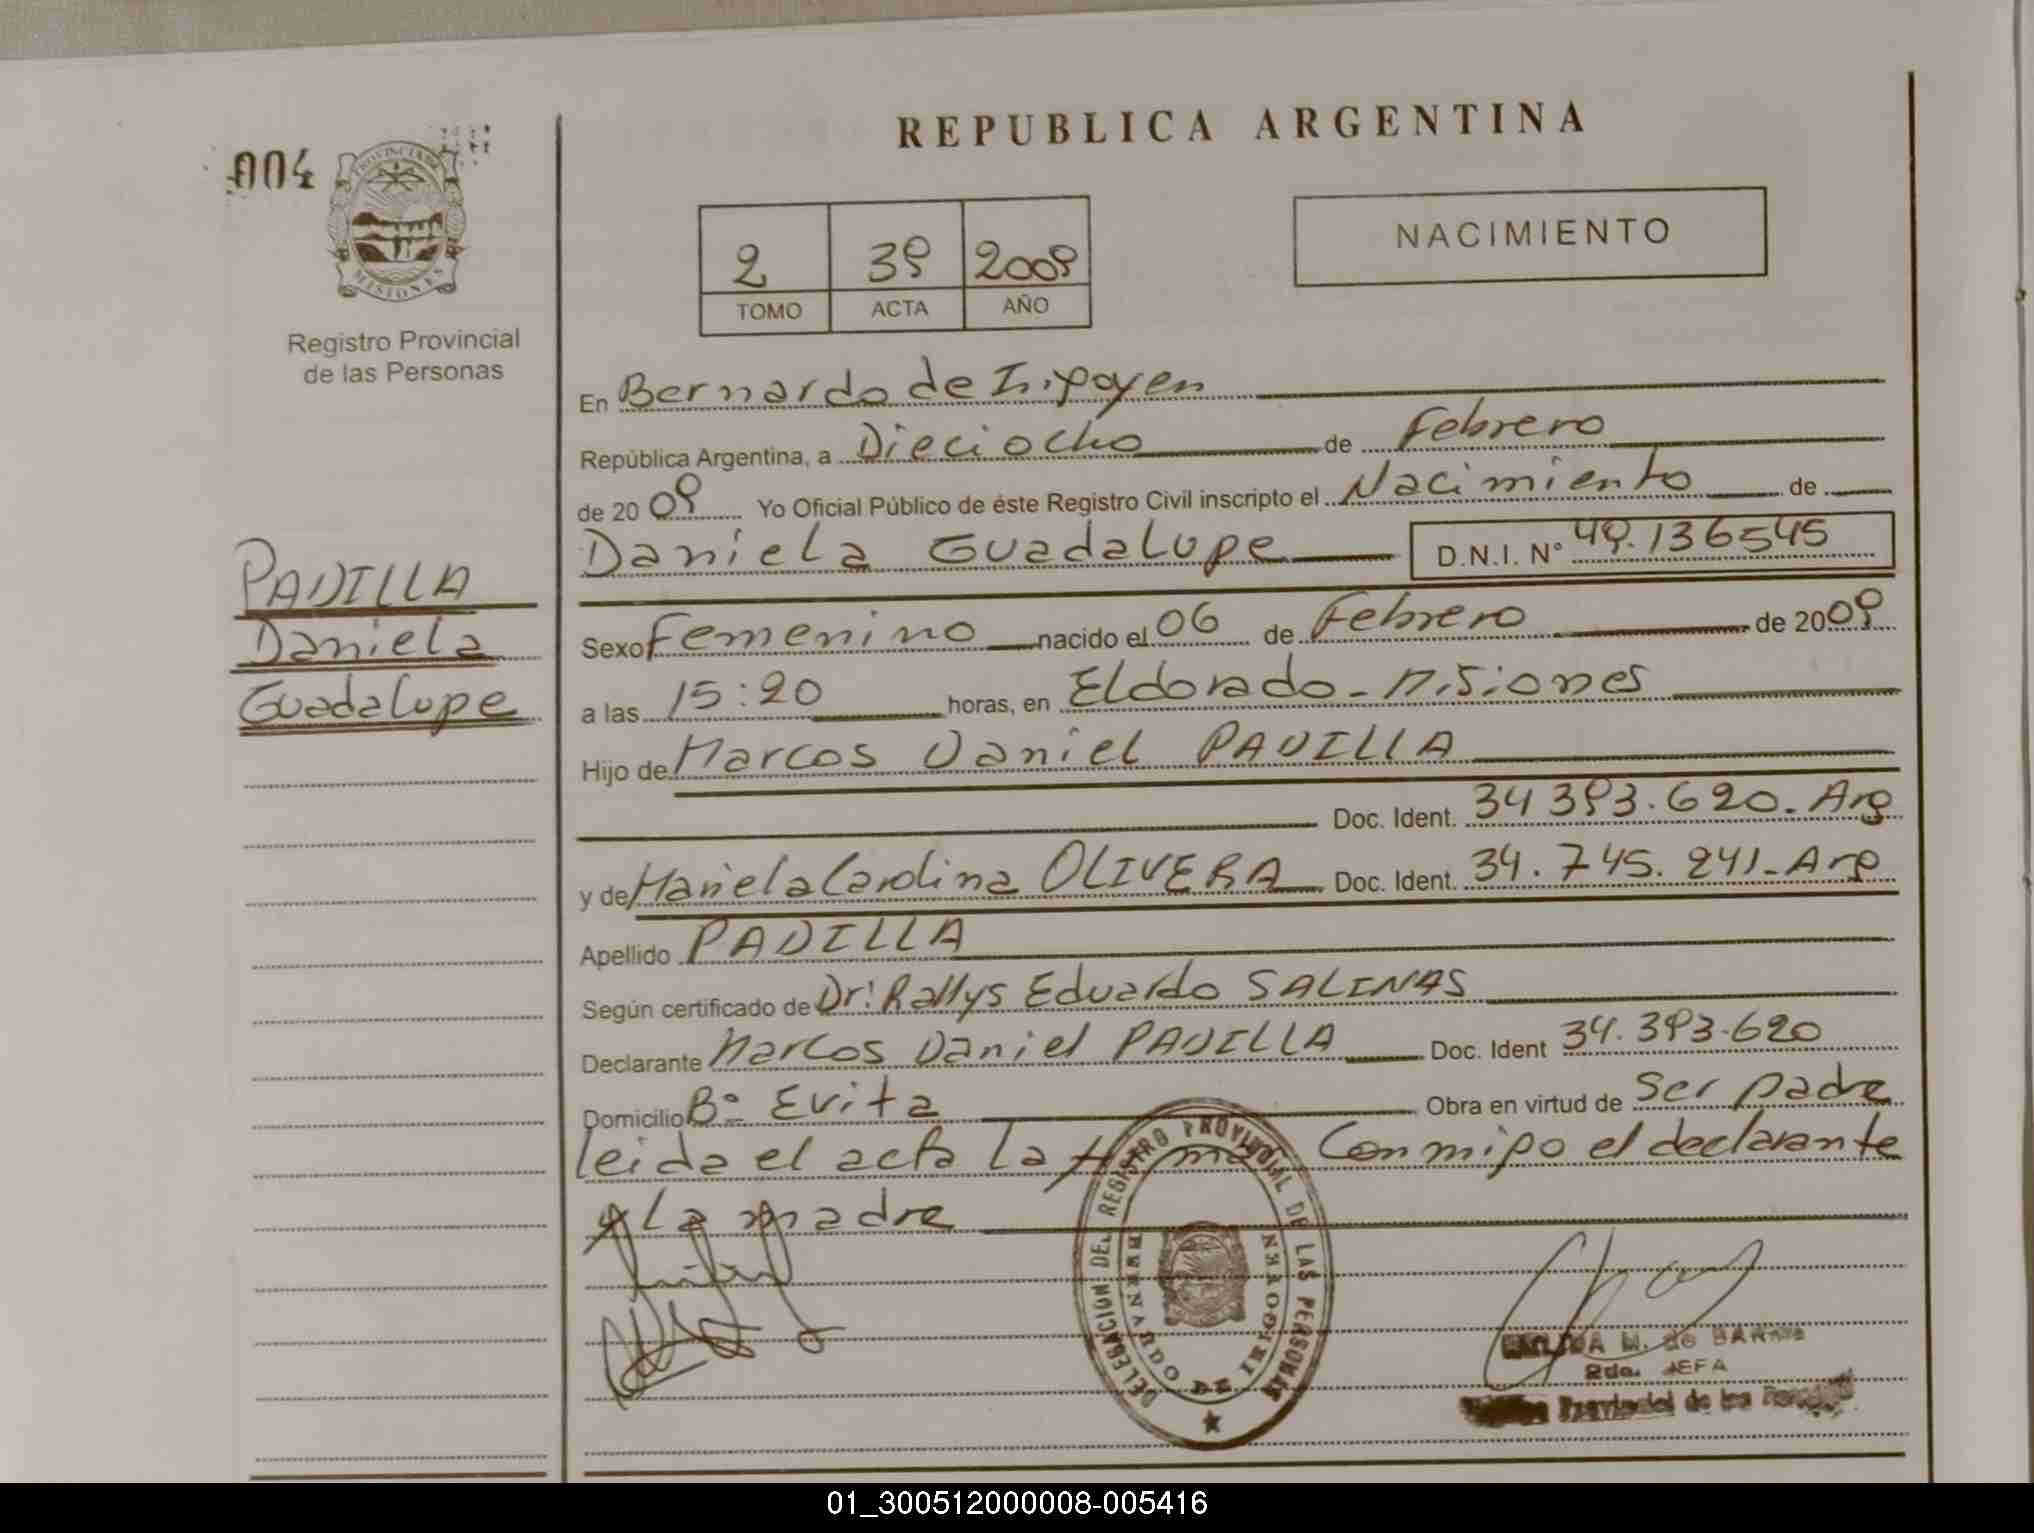 REPUBLICA ARGENTINA
004
PROVINCIA DE
MISIONES
Registro Provincial
de las Personas
2 39 2009
TOMO ACTA AÑO
NACIMIENTO
PADILLA
Daniela
Guadalupe
En Bernardo de Irigoyen
República Argentina, a Dieciocho de Febrero
de 2009 Yo Oficial Público de éste Registro Civil inscripto el Nacimiento de
Daniela Guadalupe D.N.I. N° 49.136545
Sexo Femenino nacido el 06 de Febrero de 2009
a las 15:20 horas, en Eldorado - Misiones
Hijo de Marcos Daniel PADILLA
Doc. Ident. 34 393.620. Arg
y de Mariela Carolina OLIVERA Doc. Ident. 34.745.241 - Arg
Apellido PADILLA
Según certificado de Dr: Rallys Eduardo SALINAS
Declarante Marcos Daniel PADILLA Doc. Ident 34.393.620
Domicilio B° Evita Obra en virtud de Ser padre
leida el acta la firma Conmigo el declarante
y la madre
DELEGACION DEL REGISTRO PROVINCIAL DE LAS PERSONAS
DE IRIGOYEN
M. de
2da. JEFA
Provincial de las
01_300512000008-005416